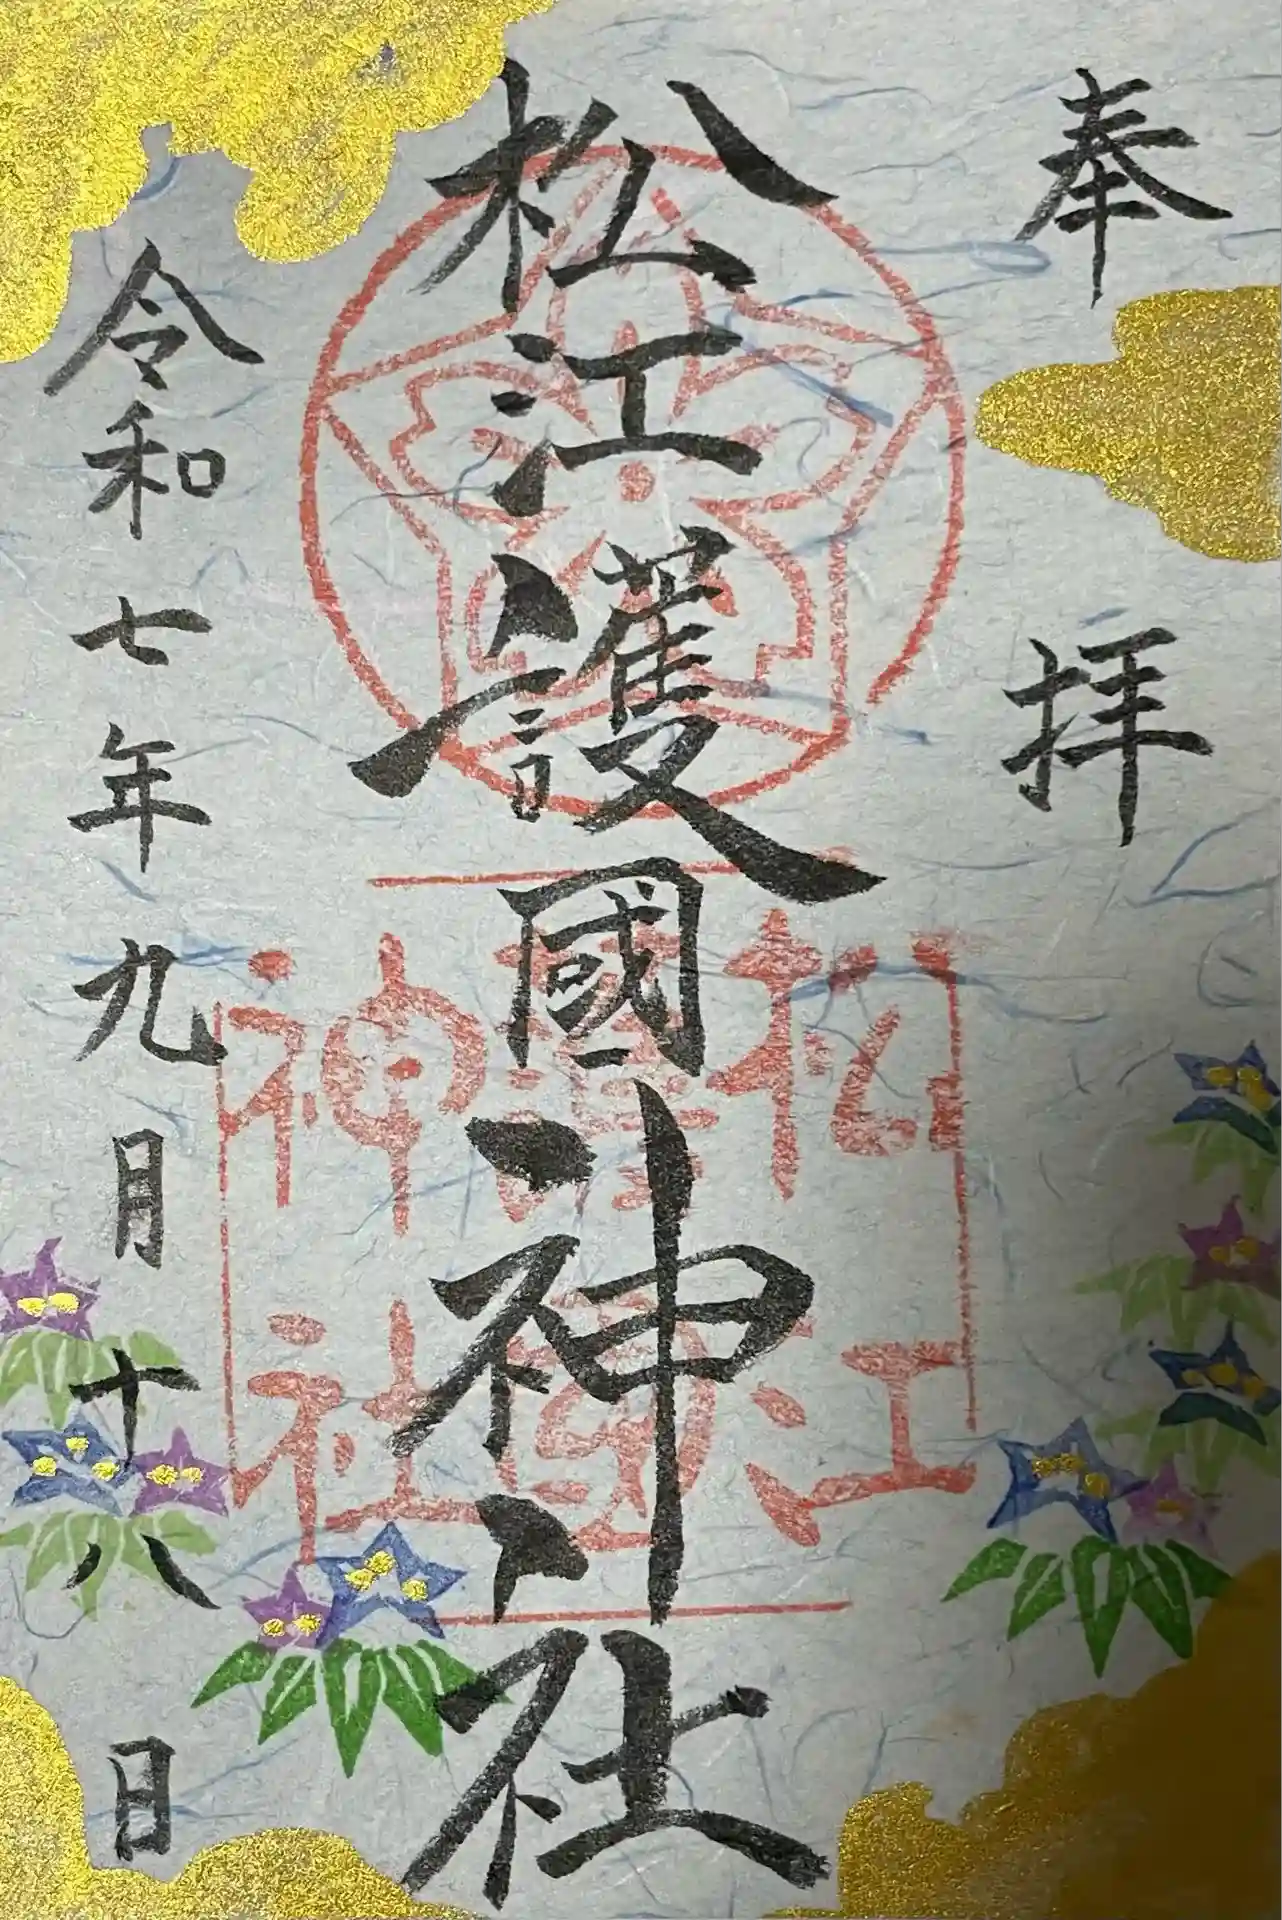 奉拝
松江護國神社
松江
護國
神社
令和七年九月十八日